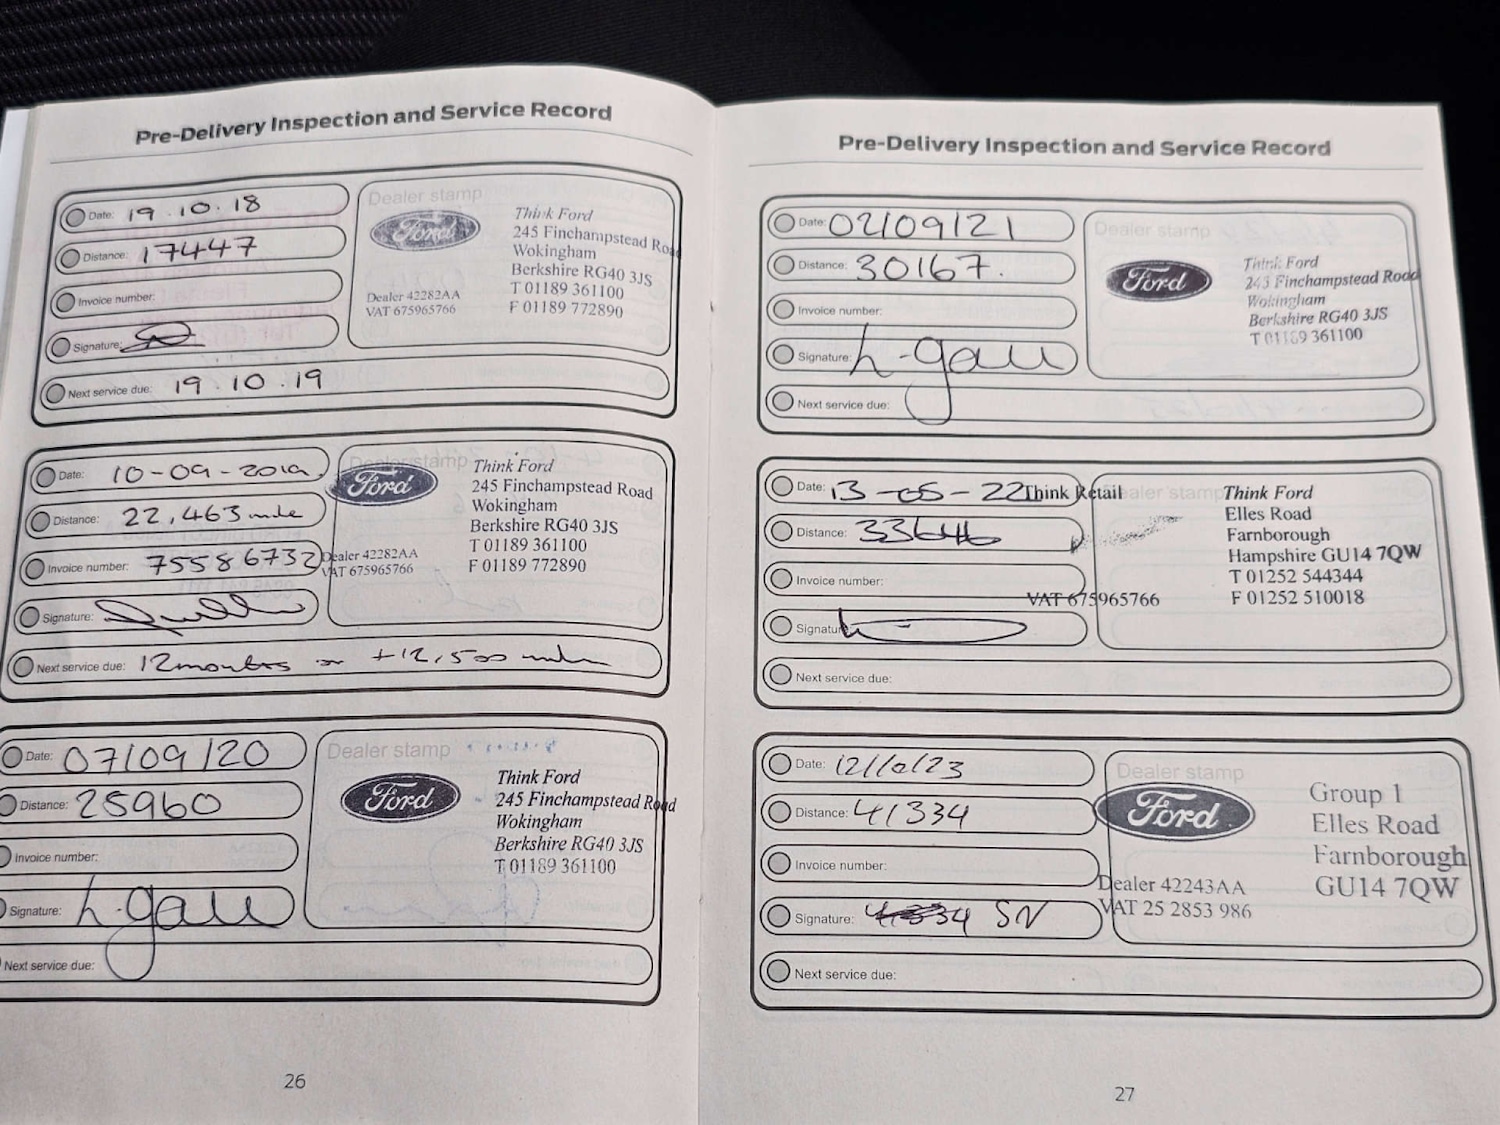 Pre-Delivery Inspection and Service Record
Date: 19.10.18
Distance: 17447
Invoice number:
Signature:
Next service due: 19.10.19
Dealer stamp
Ford
Think Ford
245 Finchampstead Road
Wokingham
Berkshire RG40 3JS
T 01189 361100
F 01189 772890
Dealer 42282AA
VAT 675965766
Date: 10-09-2019
Distance: 22,463 mile
Invoice number: 75586732
Signature:
Next service due: 12 months or +12,500 miles
Dealer stamp
Ford
Think Ford
245 Finchampstead Road
Wokingham
Berkshire RG40 3JS
T 01189 361100
F 01189 772890
Dealer 42282AA
VAT 675965766
Date: 07/09/20
Distance: 25960
Invoice number:
Signature: L.gall
Next service due:
Dealer stamp
Ford
Think Ford
245 Finchampstead Road
Wokingham
Berkshire RG40 3JS
T 01189 361100
26
Pre-Delivery Inspection and Service Record
Date: 02/09/21
Distance: 30167.
Invoice number:
Signature: L.gall
Next service due:
Dealer stamp
Ford
Think Ford
245 Finchampstead Road
Wokingham
Berkshire RG40 3JS
T 01189 361100
Date: 13-05-22
Distance: 33646
Invoice number:
Signature:
Next service due:
Think Retail
Dealer stamp
Think Ford
Elles Road
Farnborough
Hampshire GU14 7QW
T 01252 544344
F 01252 510018
VAT 675965766
Date: 12/10/23
Distance: 41334
Invoice number:
Signature: 41334 SN
Next service due:
Dealer stamp
Ford
Group 1
Elles Road
Farnborough
GU14 7QW
Dealer 42243AA
VAT 25 2853 986
27